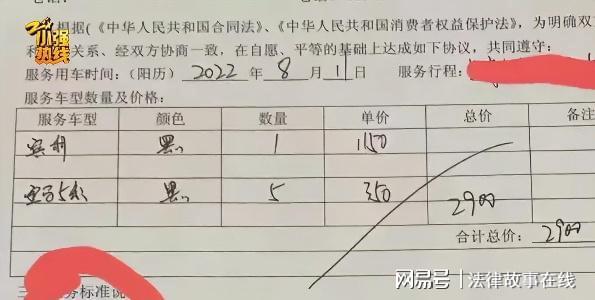 小强热线
根据(《中华人民共和国合同法》、《中华人民共和国消费者权益保护法》,为明确双
和 关系、经双方协商一致,在自愿、平等的基础上达成如下协议,共同遵守:
服务用车时间:(阳历) 2022 年 8 月 11 日 服务行程:
服务车型数量及价格:
服务车型 颜色 数量 单价 总价 备注
宾利 黑 1 1150
宝马5系 黑 5 350 2900
合计总价: 2900
三 务标准说
网易号 | 法律故事在线